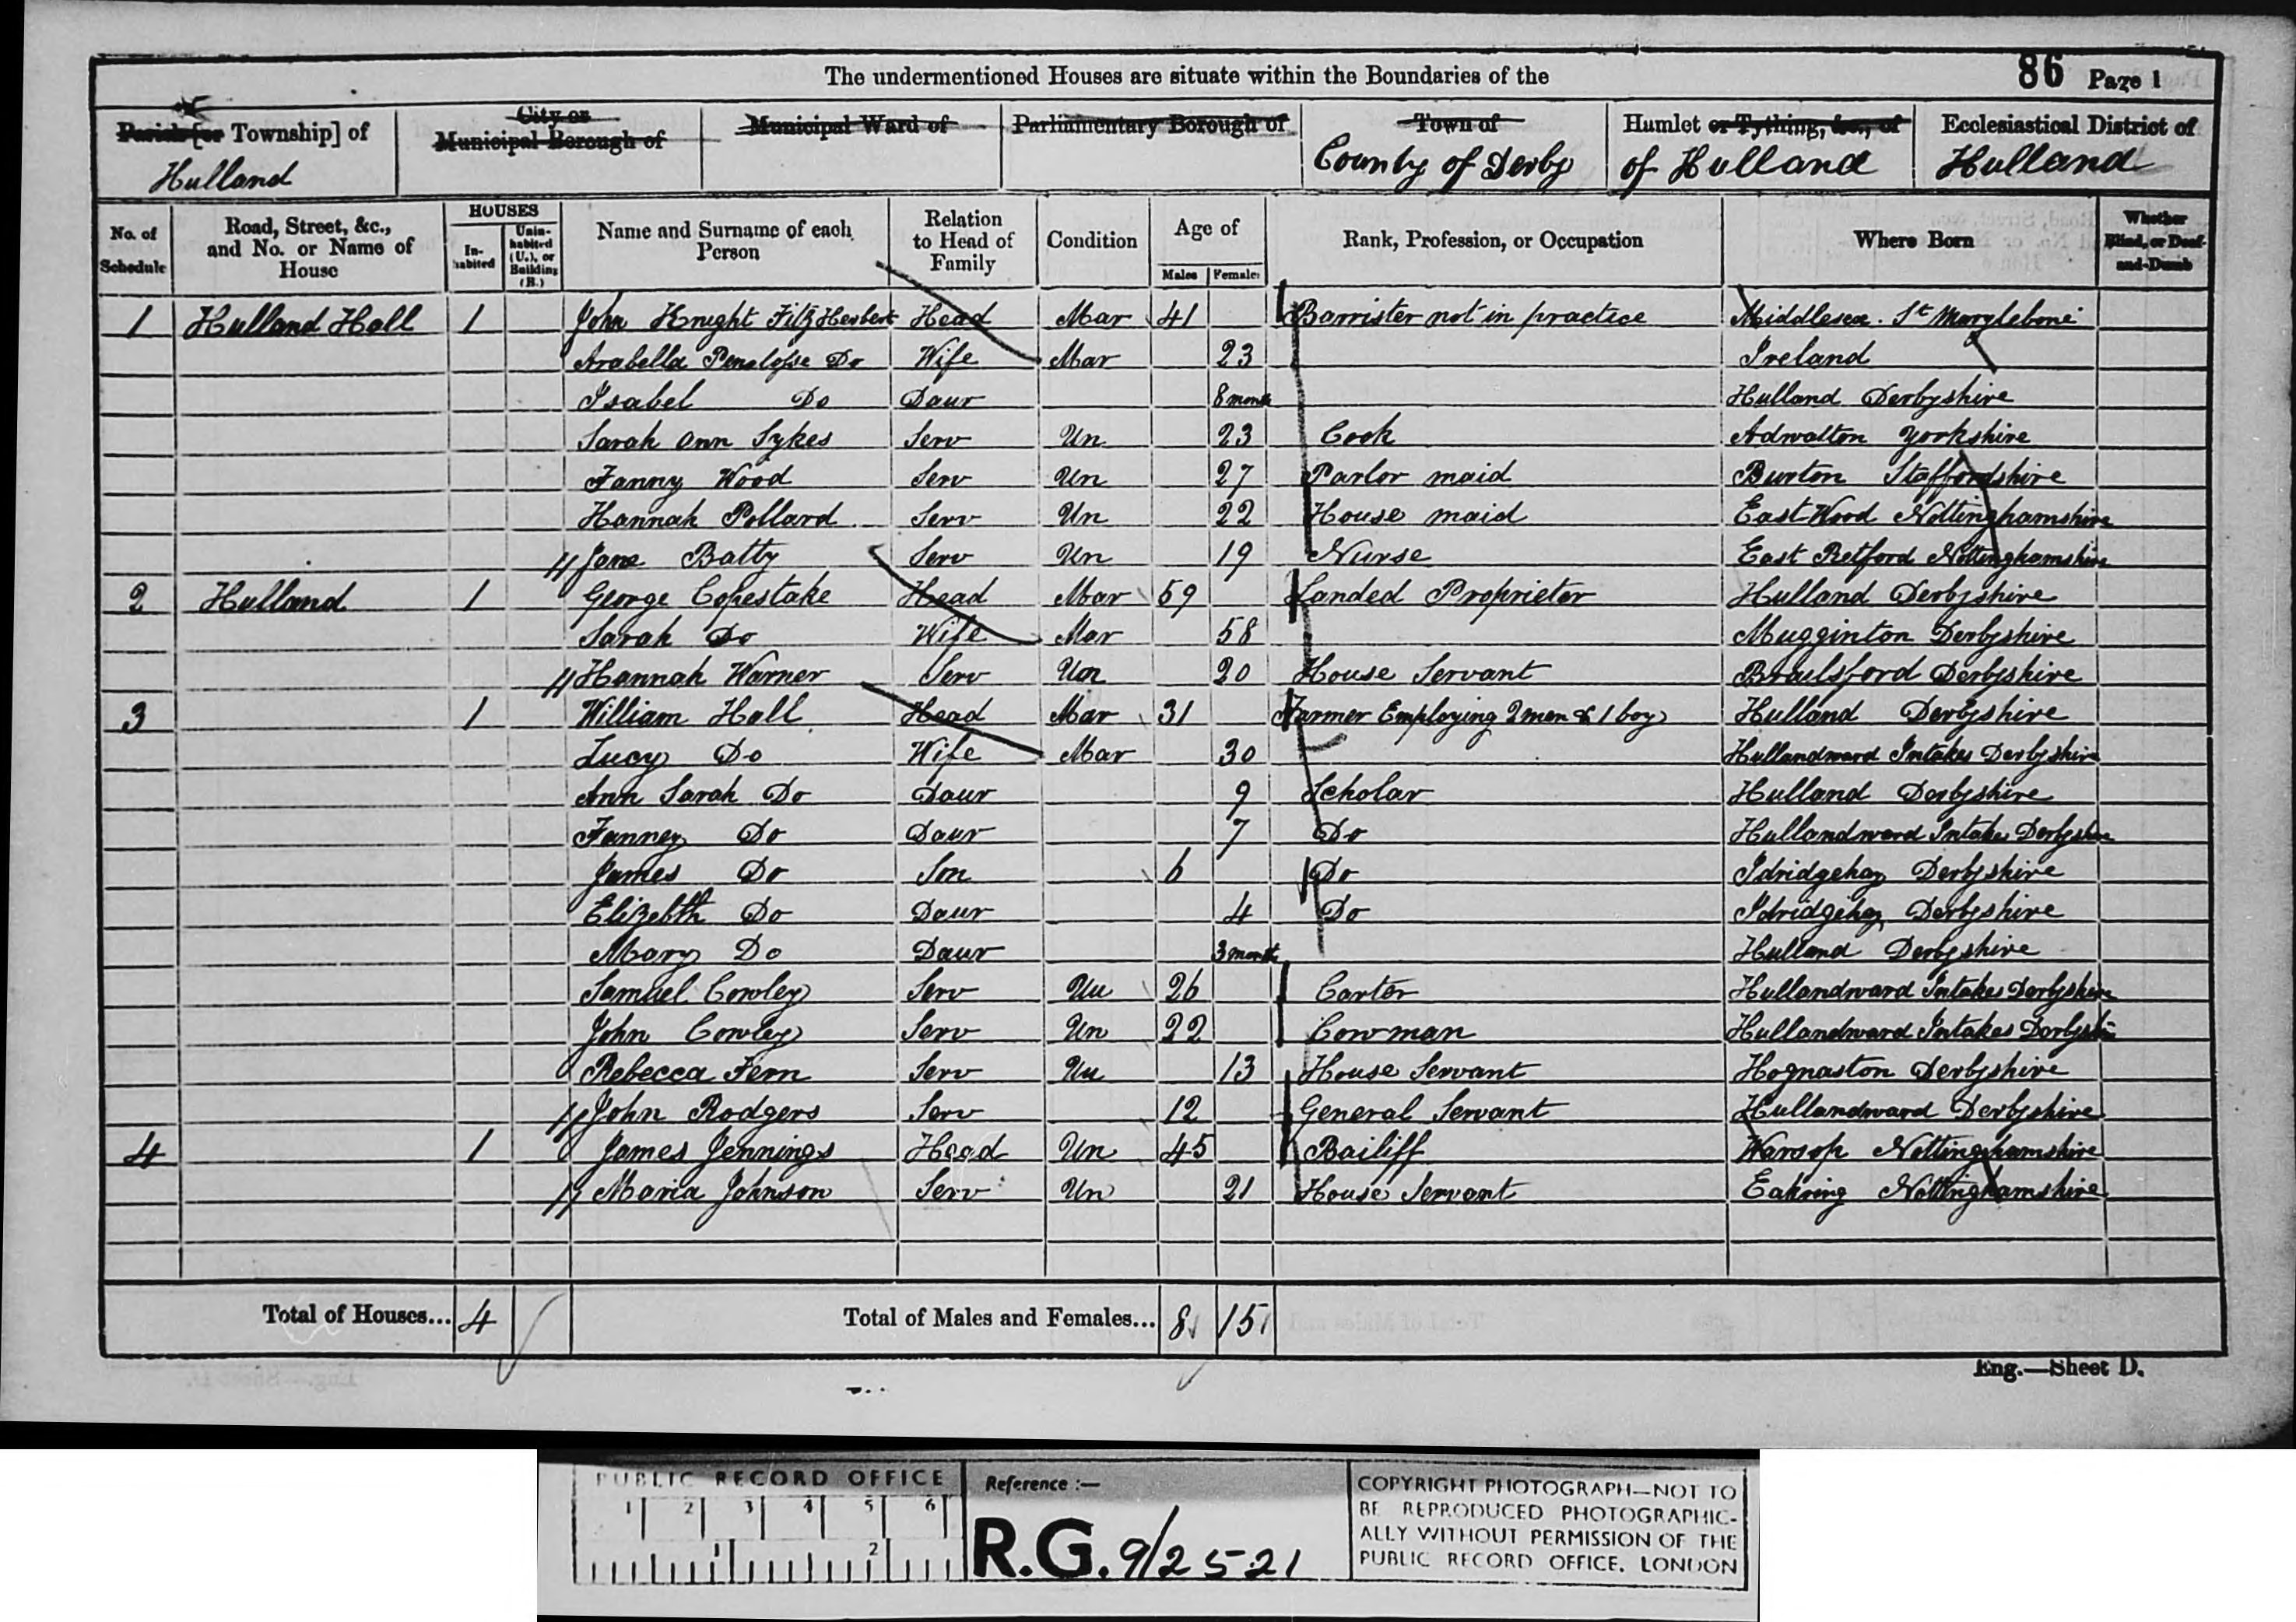 The undermentioned Houses are situate within the Boundaries of the
86 Page 1
Parish [or Township] of
Hulland
City or
Municipal Borough of
Municipal Ward of
Parliamentary Borough of
Town of
County of Derby
Hamlet or Tything, &c., of
of Hulland
Ecclesiastical District of
Hulland
No. of Schedule
Road, Street, &c., and No. or Name of House
HOUSES
In-habited
Unin-habited (U.), or Building (B.)
Name and Surname of each Person
Relation to Head of Family
Condition
Age of
Males Females
Rank, Profession, or Occupation
Where Born
Whether Blind, or Deaf-and-Dumb
1 Hulland Hall 1 John Knight FitzHerbert Head Mar 41 Barrister not in practice Middlesex. St Marylebone
Arabella Penelope Do Wife Mar 23 Ireland
Isabel Do Daur 8 month Hulland Derbyshire
Sarah Ann Sykes Serv Un 23 Cook Adwalton Yorkshire
Fanny Wood Serv Un 27 Parlor maid Burton Staffordshire
Hannah Pollard Serv Un 22 House maid East Wood Nottinghamshire
// Jane Batty Serv Un 19 Nurse East Retford Nottinghamshire
2 Hulland 1 George Copestake Head Mar 59 Landed Proprietor Hulland Derbyshire
Sarah Do Wife Mar 58 Mugginton Derbyshire
// Hannah Warner Serv Un 20 House Servant Brailsford Derbyshire
3 1 William Hall Head Mar 31 Farmer Employing 2 men & 1 boy Hulland Derbyshire
Lucy Do Wife Mar 30 Hullandward Intakes Derbyshire
Ann Sarah Do Daur 9 Scholar Hulland Derbyshire
Fanney Do Daur 7 Do Hullandward Intakes Derbyshire
James Do Son 6 Do Idridgehay Derbyshire
Elizebth Do Daur 4 Do Idridgehay Derbyshire
Mary Do Daur 3 month Hulland Derbyshire
Samuel Cowley Serv Un 26 Carter Hullandward Intakes Derbyshire
John Cowley Serv Un 22 Cowman Hullandward Intakes Derbyshire
Rebecca Fern Serv Un 13 House Servant Hognaston Derbyshire
// John Rodgers Serv 12 General Servant Hullandward Derbyshire
4 1 James Jennings Head Un 45 Bailiff Warsop Nottinghamshire
// Maria Johnson Serv Un 21 House Servant Eakring Nottinghamshire
Total of Houses... 4
Total of Males and Females... 8 15
Eng.—Sheet D.
PUBLIC RECORD OFFICE
1 2 3 4 5 6
1 2
Reference :—
R.G. 9/2521
COPYRIGHT PHOTOGRAPH—NOT TO
BE REPRODUCED PHOTOGRAPHIC-
ALLY WITHOUT PERMISSION OF THE
PUBLIC RECORD OFFICE, LONDON